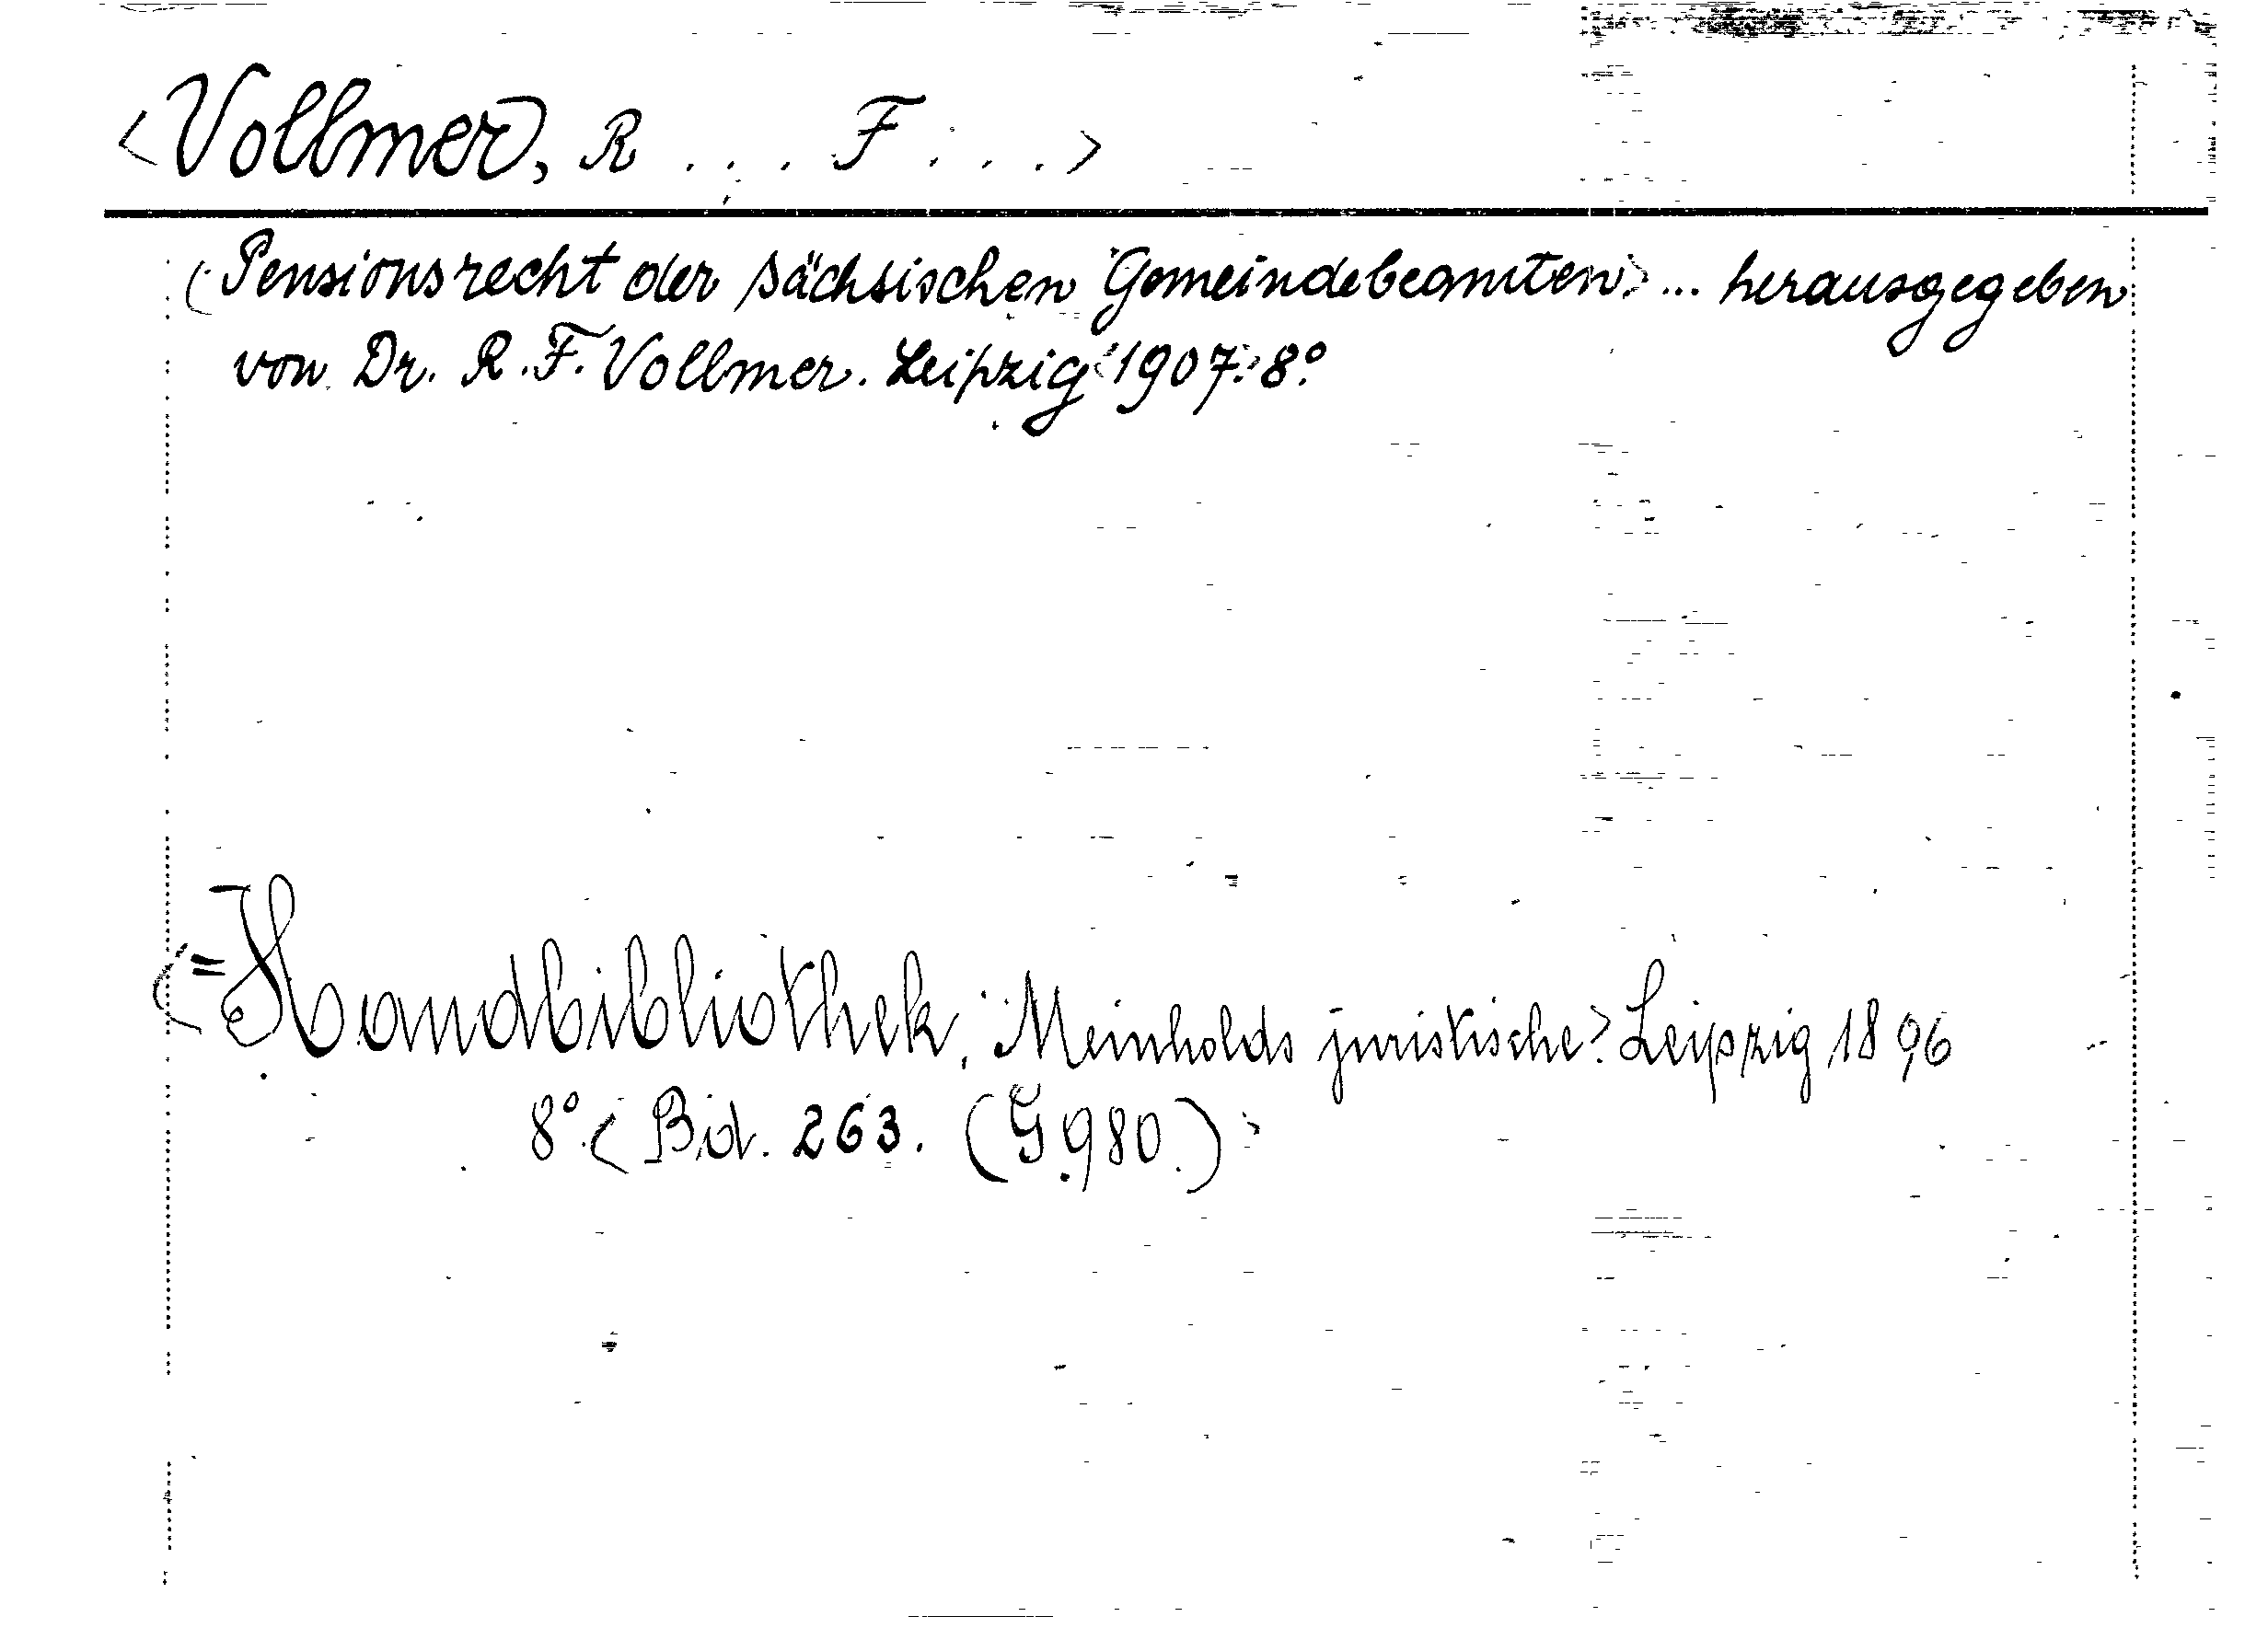 <Vollmer, R . . . F . . .>
<Pensionsrecht der sächsischen Gemeindebeamten> ... herausgegeben
von Dr. R. F. Vollmer. Leipzig <1907.> 8°.
<= Handbibliothek, Meinholds juristische> Leipzig 1896
8°. < Bd. 263. (G.980.)>